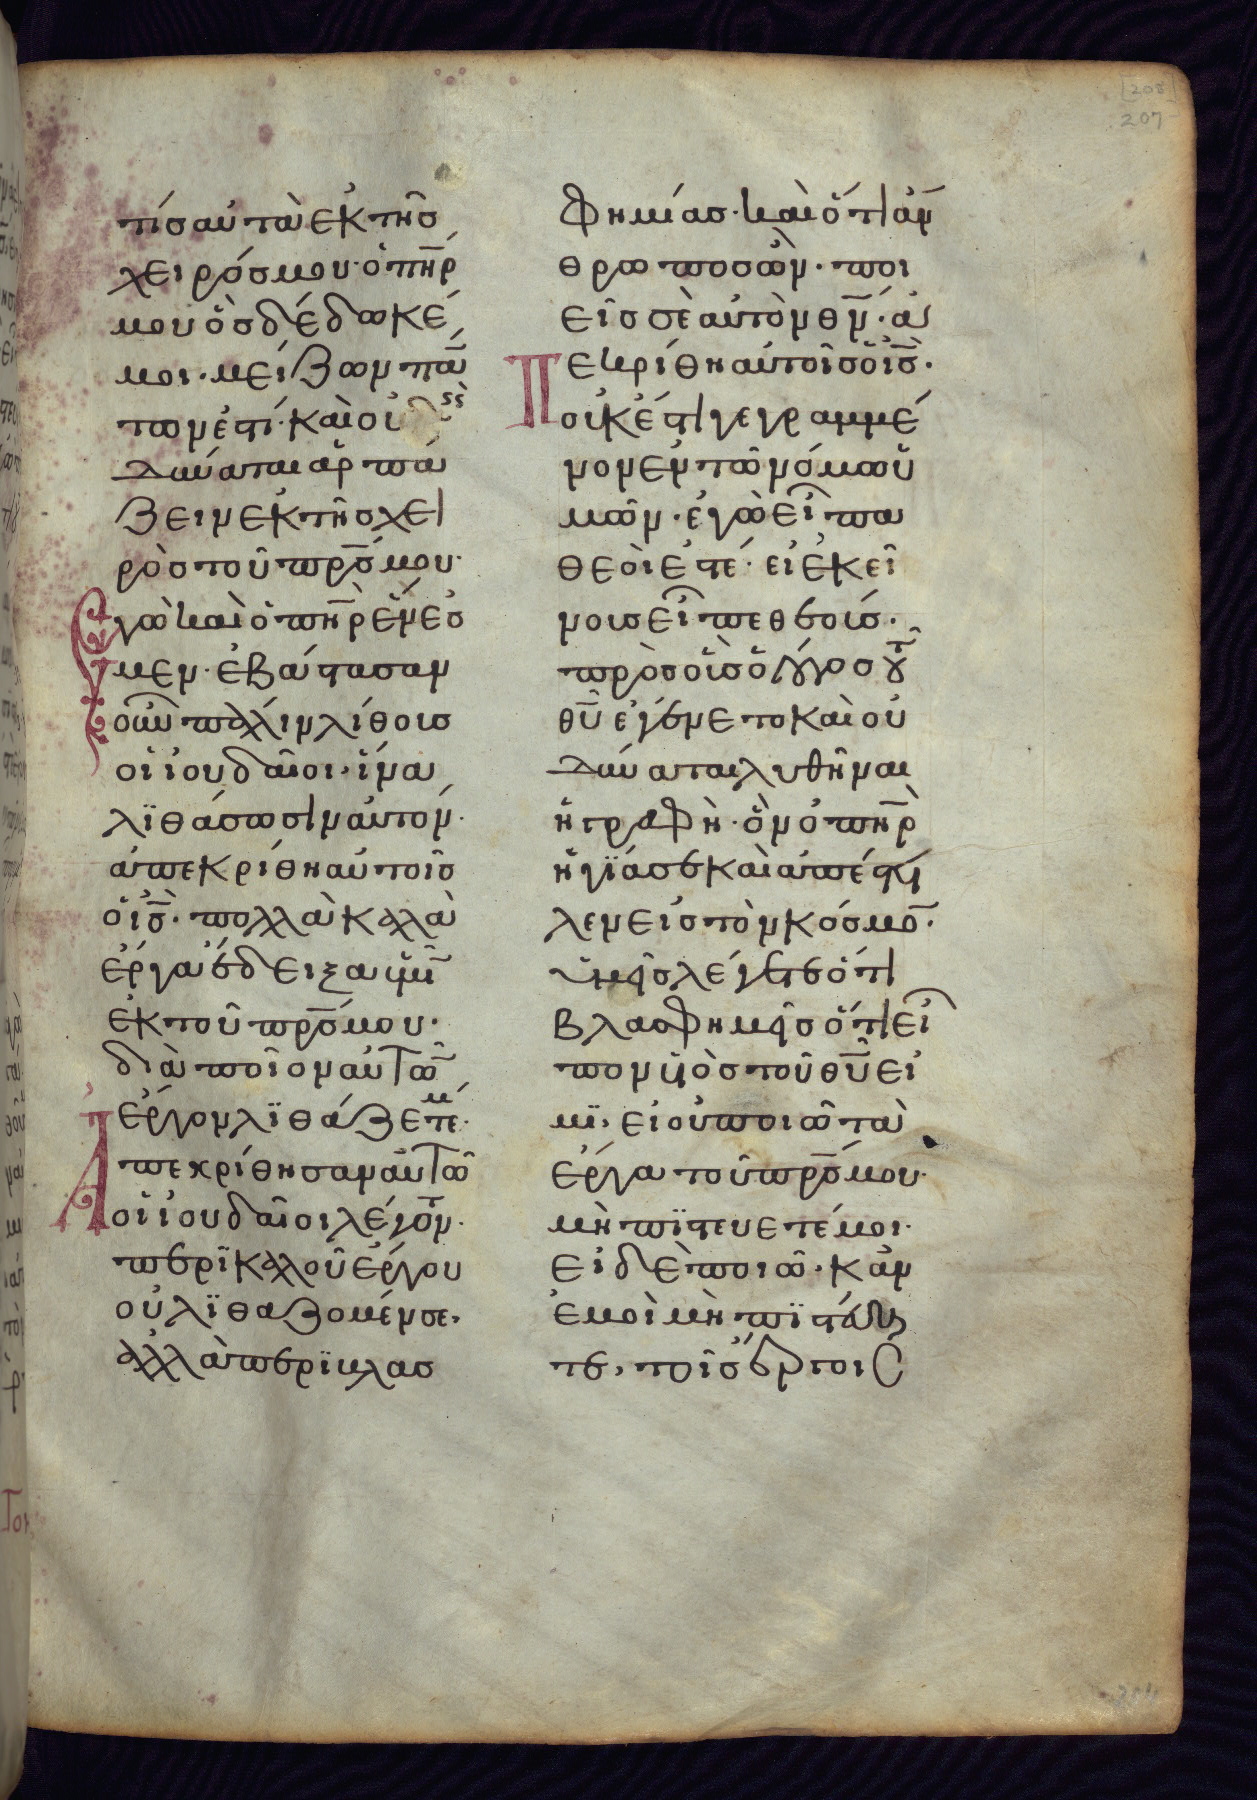 τίς αὐτὰ ἐκ τῆς
χειρός μου· ὁ π̅η̅ρ
μου ὃς δέδωκέ
μοι· μείζων πάν
των ἐστί· καὶ οὐ
δύναται ἁρπά
ζειν ἐκ τῆς χει
ρὸς τοῦ π̅ρ̅ς μου·
Ἐγὼ καὶ ὁ π̅η̅ρ ἕν ἐσ
μεν· ἐβάστασαν
οὖν πάλιν λίθους
οἱ ἰουδαῖοι· ἵνα
λϊθάσωσιν αὐτόν·
ἀπεκρίθη αὐτοῖς
ὁ ι̅ς̅· πολλὰ καλὰ
ἔργα ἔδειξα ὑμῖ
ἐκ τοῦ π̅ρ̅ς μου·
διὰ ποῖον αὐτῶ
ἔργον λϊθάζετέ με·
Ἀπεκρίθησαν αὐτῶ
οἱ ἰουδαῖοι λέγοντ·
περὶ καλοῦ ἔργου
οὐ λϊθάζομέν σε·
ἀλλὰ περὶ βλασ
φημίας· καὶ ὅτι ἄν
θρωπος ὢν· ποι
εῖς σὲ αὐτὸν θ̅ν̅· ἀ
Πεκρίθη αὐτοῖς ὁ ι̅ς̅·
οὐκ ἔστι γεγραμμέ
νον ἐν τῶ νόμω ὑ
μῶν· ἐγὼ εἶπα
θεοί ἐστέ· εἰ ἐκεί
νους εἶπε θεούς·
πρὸς οὓς ὁ λόγος τοῦ
θ̅υ̅ ἐγένετο καὶ οὐ
δύναται λυθῆναι
ἡ γραφὴ· ὃν ὁ π̅η̅ρ
ἡγϊασε καὶ ἀπέστει
λεν εἰς τὸν κόσμο̅·
ὑμεῖς λέγετε ὅτι
βλασφημεῖς ὅτι εἶ
πον υἱὸς τοῦ θ̅υ̅ εἰ
μϊ· εἰ οὐ ποιῶ τὰ
ἔργα τοῦ π̅ρ̅ς μου·
μὴ πϊστευετέ μοι·
εἰ δὲ ποιῶ· κἂν
ἐμοὶ μὴ πϊστεύη
τε, τοῖς ἔργοις